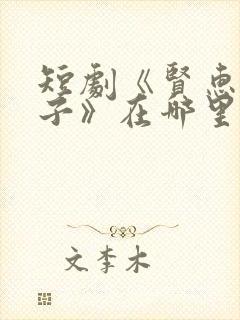 短劇《賢惠
子》在哪里
文李木